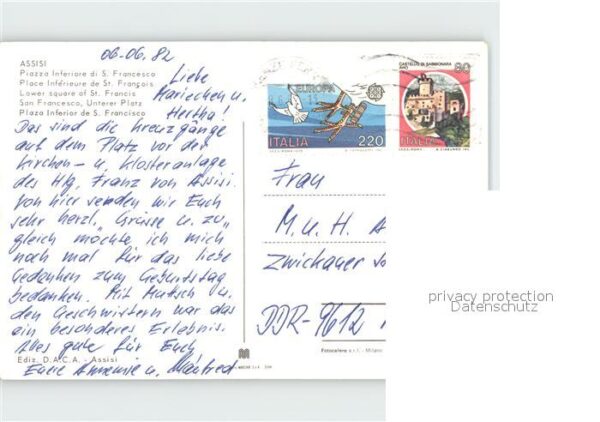 06.06.82
ASSISI
Piazza Inferiore di S. Francesco
Place Inférieure de St. François
Lower square of St. Francis
San Francesco, Unterer Platz
Plaza Inferior de S. Francisco
Liebe
Mariechen u.
Hertha!
Das sind die Kreuzgänge
auf dem Platz vor der
Kirchen- u. Klosteranlage
des Hlg. Franz von Assisi.
Von hier senden wir Euch
sehr herzl. Grüsse u. zu-
gleich möchte ich mich
noch mal für das liebe
Gedenken zum Geburtstag
bedanken. Mit Muttsch u.
den Geschwistern war das
ein besonderes Erlebnis.
Alles gute für Euch
Eure Annemie u. Manfred
Ediz. D.A.C.A. - Assisi
EUROPA
ITALIA 220
CASTELLO DI SABBIONARA
AVIO
90
ITALIA
Frau
M. u. H.
Zwickauer
DDR-9612
Fotocelere s.r.l. - Milano
privacy protection
Datenschutz